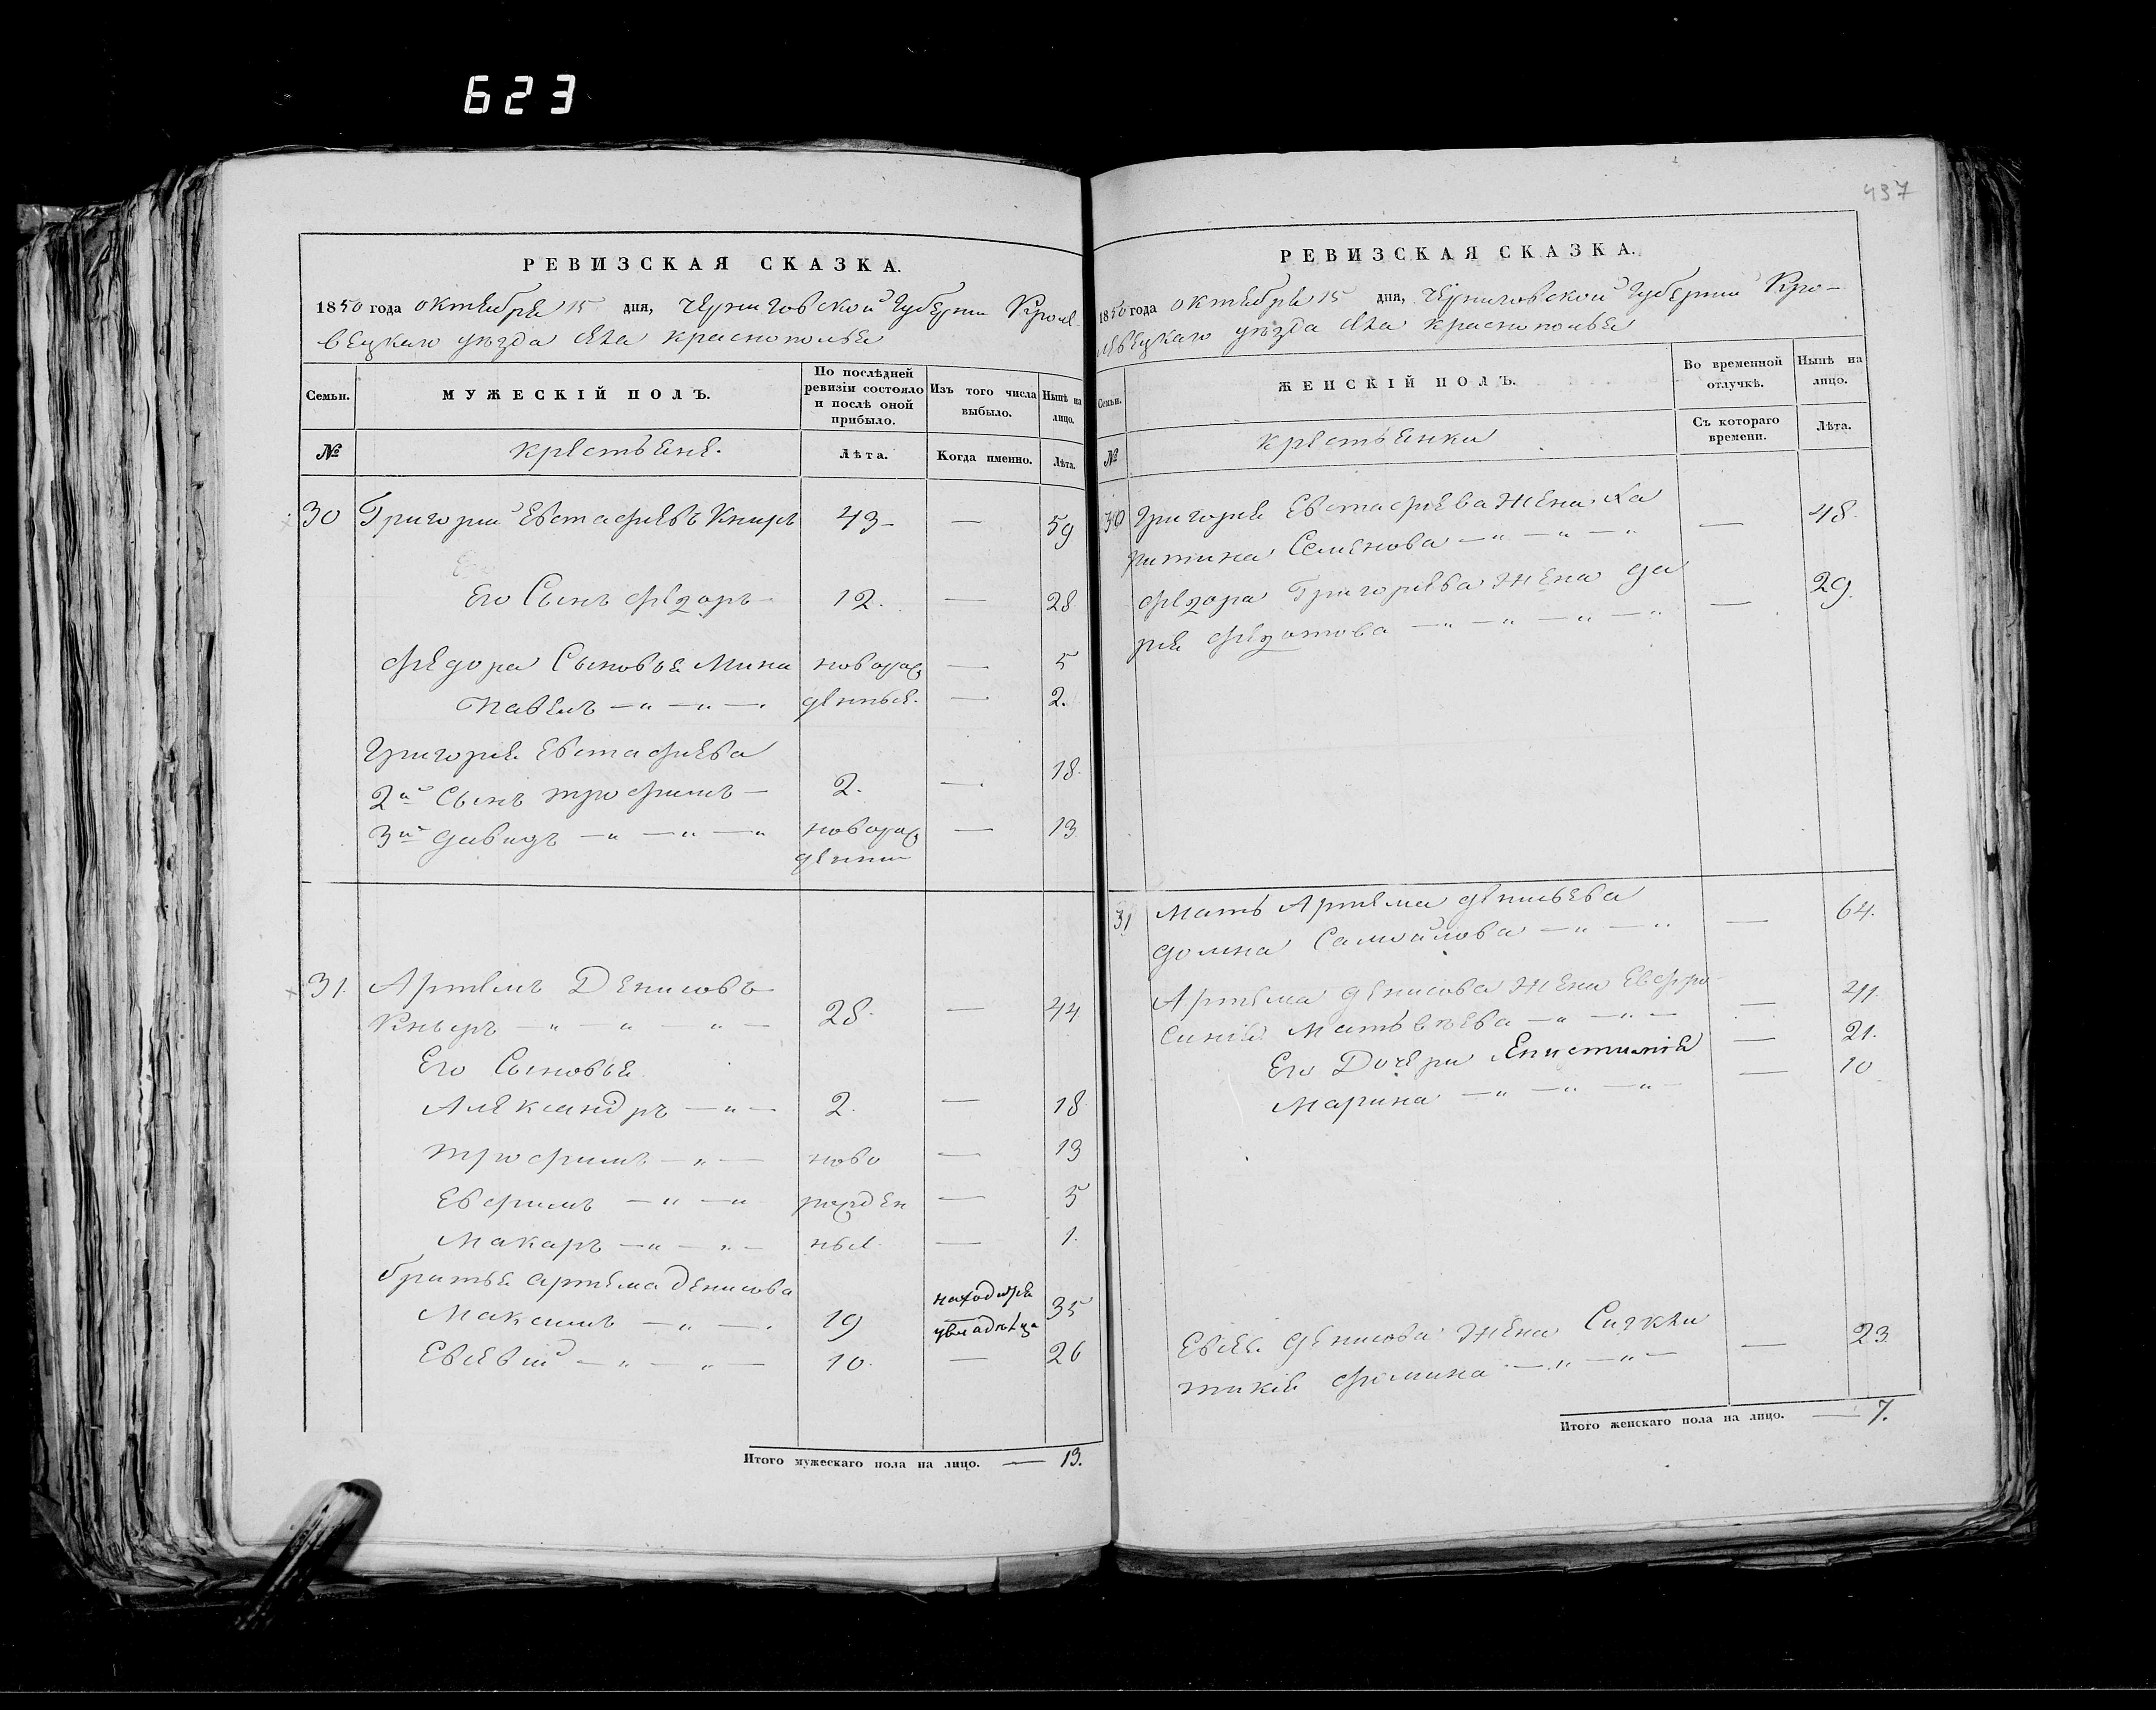 623
437
РЕВИЗСКАЯ СКАЗКА.
1850 года октября 15 дня, Черниговской Губернии Кроле-
вецкаго уѣзда села Краснополья
Семьи.
МУЖЕСКІЙ ПОЛЪ.
По послѣдней ревизіи состояло и послѣ оной прибыло.
Изъ того числа выбыло.
Нынѣ на лицо.
№
крестьяне.
Лѣта.
Когда именно.
Лѣта.
30 Григорий Евстафиевъ Книръ 43 — 59
Его Сынъ Федоръ 12. — 28
Федора Сыновья Мина новорож — 5
Павелъ — „ — „ — денные. — 2.
Григория Евстафиева
2й Сынъ трофимъ — 2. — 18.
3й давидъ — „ — „ — „ новорож — 13
денни
31. Артемъ Денисовъ
Кныръ — „ — „ — „ — 28. — 44
Его Сыновья
Александръ — „ — 2. — 18
трофимъ — „ — ново — 13
Евфимъ — „ — „ рожден — 5
Макаръ — „ — „ — ные — 1.
братья артема денисова
Максимъ — „ — 19 находитса 35
увладельца
Евсевий — „ — „ — 10. — 26
Итого мужескаго пола на лицо. — 13.
РЕВИЗСКАЯ СКАЗКА.
1850 года октября 15 дня, Черниговской Губернии Кро-
левецкаго уѣзда села краснополья
Семьи.
ЖЕНСКІЙ ПОЛЪ.
Во временной отлучкѣ.
Нынѣ на лицо.
№
крестьянки
Съ котораго времени.
Лѣта.
30 Григория Евстафиева жена Ка
ритина Семенова — „ — „ — „ — 48.
Федора Григориева жена да
рия Федотова — „ — „ — „ — „ — 29.
31 Мать Артема денисьева
домна Самойлова — „ — „ — 64.
Артема денисова жена Евфро
синия Матвѣева — „ — „ — — 41.
Его Дочери — 21.
Марина — „ — „ — „ — — 10
Евсея денисова жена
фомина — „ — „ — — 23.
Итого женскаго пола на лицо. — 7.